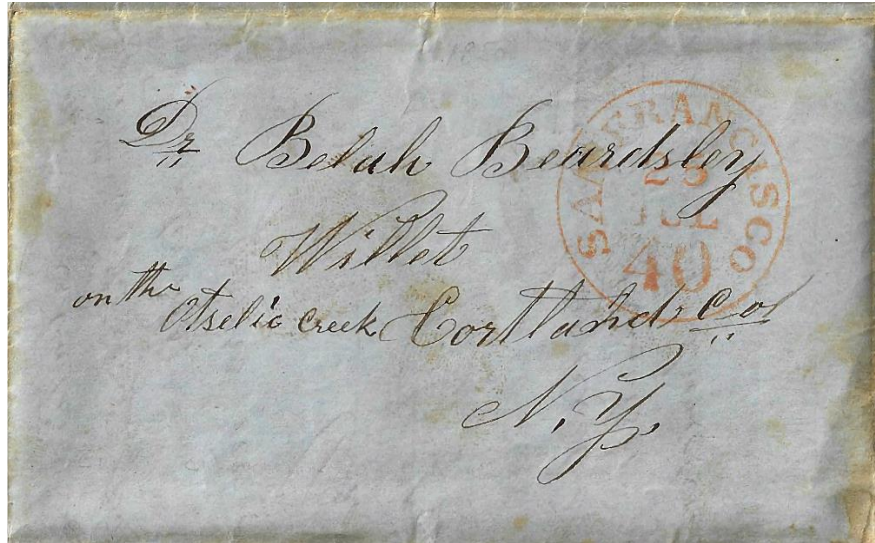 Dr Belah Beardsley
Willet
on the
Otselic Creek Cortland Co
N.Y.
SAN FRANCISCO
JUL
40